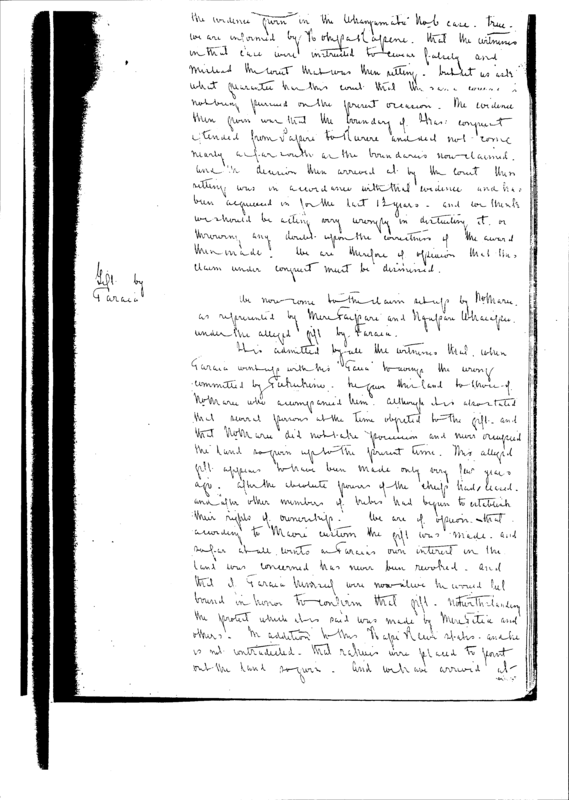 the evidence given in the Whangamata No 6 case. true.
we are informed by that the witnesses
in that case were instructed to swear falsely and
mislead the Court that was then sitting. but let us ask
what guarantee has this court that the same course is
not being pursued on the present occasion. The evidence
then given was that the boundary of conquest
extended from to and did not come
nearly as far south as the boundaries now claimed.
and the decision then arrived at by the Court then
sitting was in accordance with that evidence and has
been acquiesced in for the last 12 years. and we think
we should be acting very wrongly in disturbing it. or
throwing any doubt upon the correctness of the award
then made. We are therefore of opinion that this
claim under conquest must be dismissed.
Gift by
Taraia
We now come to the claim set up by NoMarie.
as represented by Mere Taipari and
under the alleged gift by Taraia.
It is admitted by all the witnesses that when
Taraia went up with his "Taua" to avenge the wrong
committed by he gave this land to those of
NoMarie who accompanied him. although it is also stated
that several persons at the time objected to the gift. and
that NoMarie did not take possession and never occupied
the land so given up to the present time. This alleged
gift appears to have been made only very few years
ago. after the absolute powers of the chiefs had ceased.
and after other members of tribes had begun to establish
their rights of ownership. We are of opinion that
according to Maori custom the gift was made. and
so far at all events as Taraia's own interest in the
land was concerned has never been revoked. and
that if Taraia himself were now alive he would feel
bound in honor to confirm that gift. notwithstanding
the protest which it is said was made by and
others. In addition to this states. and he
is not contradicted. that were placed to point
out the land so given. And we have arrived at